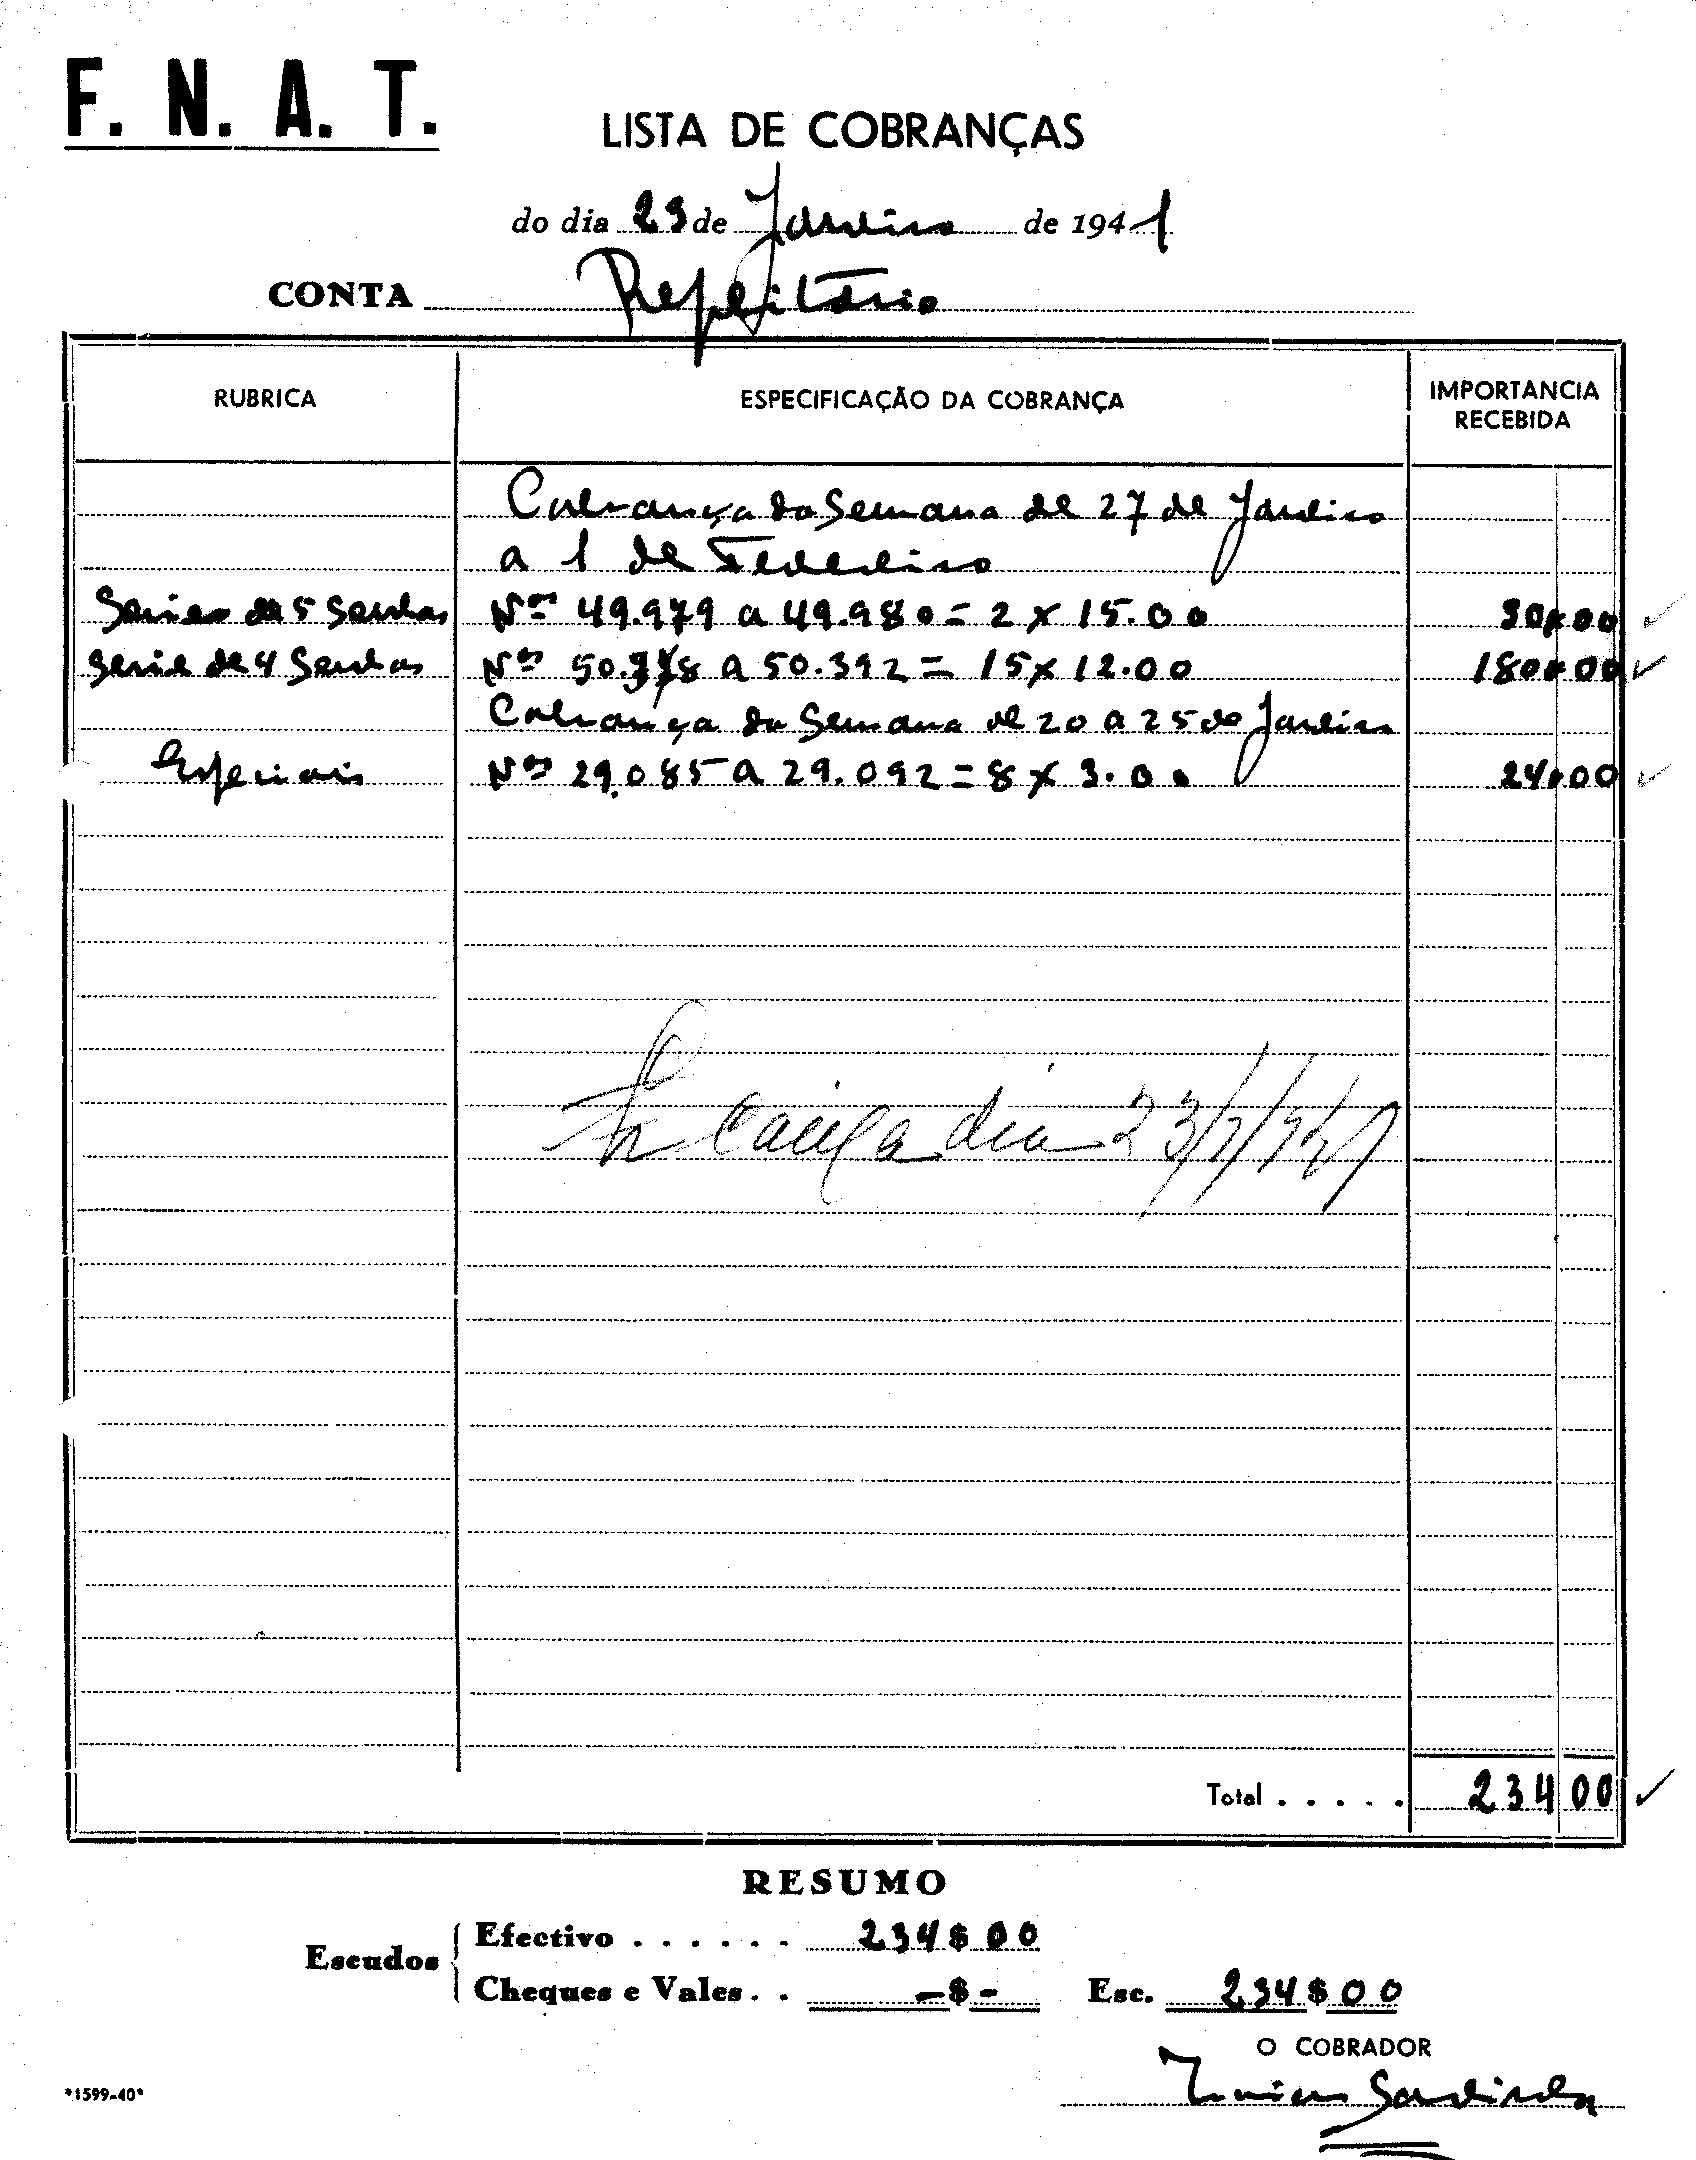 F. N. A. T.
LISTA DE COBRANÇAS
do dia 23 de Janeiro de 1941
CONTA Refeitório
RUBRICA ESPECIFICAÇÃO DA COBRANÇA IMPORTANCIA RECEBIDA
Cobrança da Semana de 27 de Janeiro
a 1 de Fevereiro
Series de 5 Senhas Nos 49.979 a 49.980 = 2 x 15.00 30$00
Serie de 4 Senhas Nos 50.378 a 50.392 = 15 x 12.00 180$00
Cobrança da Semana de 20 a 25 de Janeiro
Especiais Nos 29.085 a 29.092 = 8 x 3.00 24$00
caixa dia 23/1/941
Total . . . . . 234 00
RESUMO
Escudos
Efectivo . . . . . . 234$00
Cheques e Vales . . —$— Esc. 234$00
O COBRADOR
*1599-40*